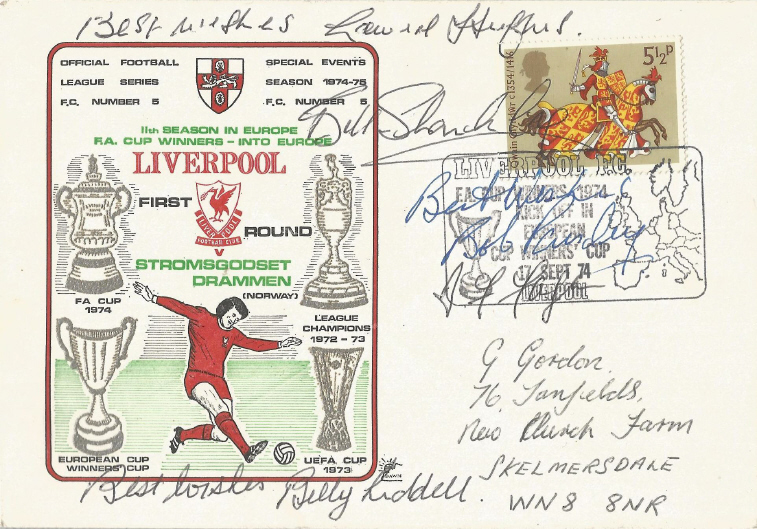 Best wishes Emlyn Hughes.
OFFICIAL FOOTBALL SPECIAL EVENTS
LEAGUE SERIES SEASON 1974-75
F.C. NUMBER 5 F.C. NUMBER 5
11th SEASON IN EUROPE
F.A. CUP WINNERS - INTO EUROPE
LIVERPOOL
FIRST
LIVERPOOL
FOOTBALL CLUB
ROUND
V
STROMSGODSET
DRAMMEN
(NORWAY)
FA CUP
1974
LEAGUE
CHAMPIONS
1972-73
EUROPEAN CUP
WINNERS' CUP
UEFA CUP
1973
5½P
c1354/1416
Bill Shankly
LIVERPOOL F.C.
FA CUP WINNERS 1974
KICK OFF IN
EUROPEAN
CUP WINNERS CUP
17 SEPT 74
LIVERPOOL
Best Wishes
Bob Paisley
G Gordon.
76, Tanfields,
New Church Farm
SKELMERSDALE
WN8 8NR
Best wishes Billy Liddell.